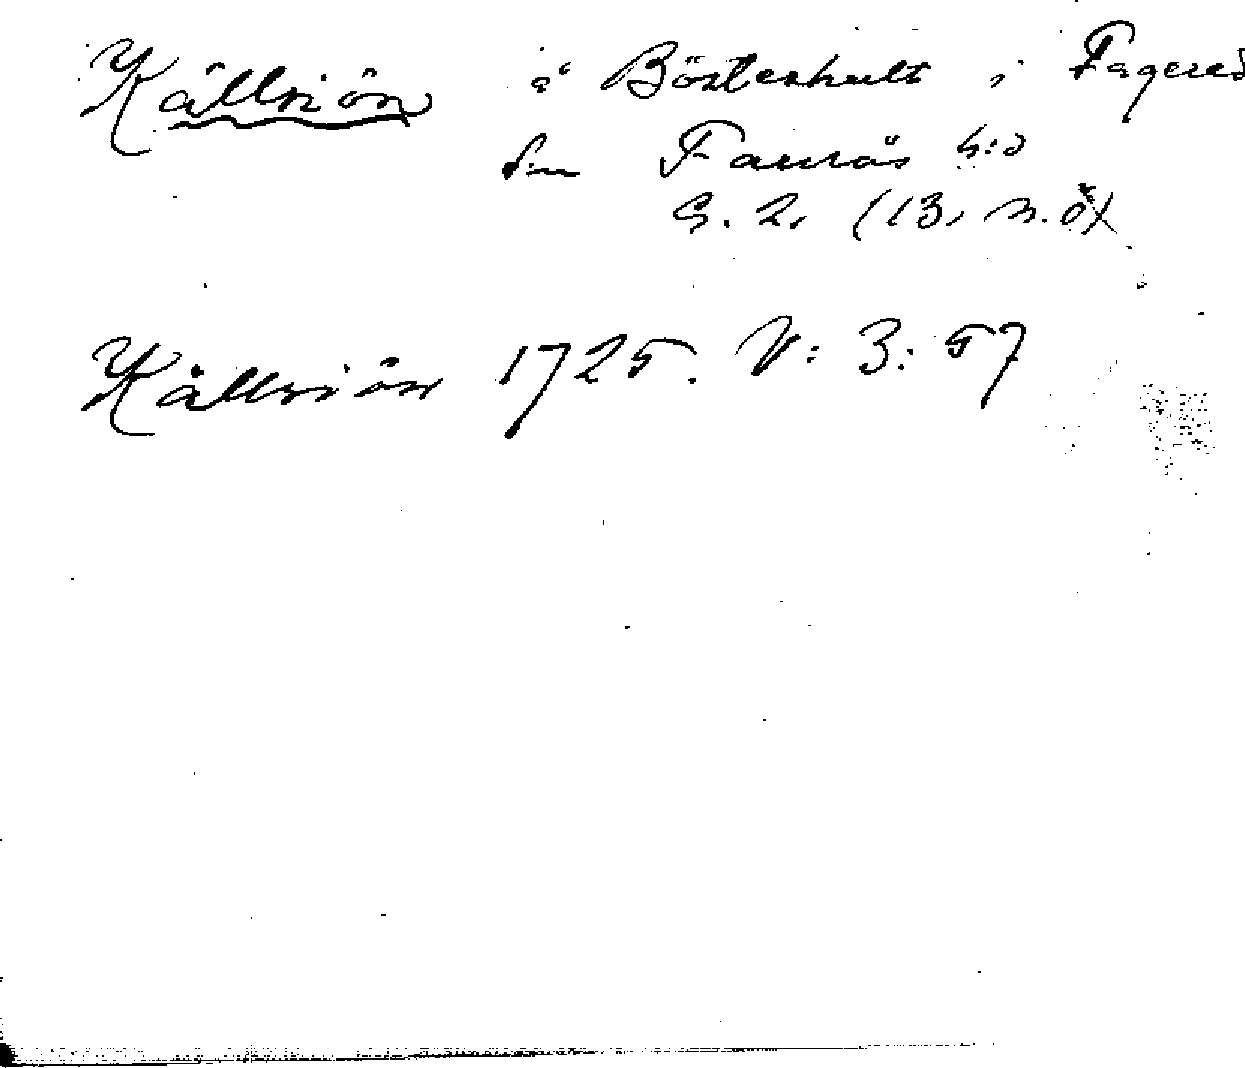 Källsiön å Böstershult i Fagered
sn Faurås h:d
G. 2. (13, n.ö)
Källsiön 1725. V: 3: 57